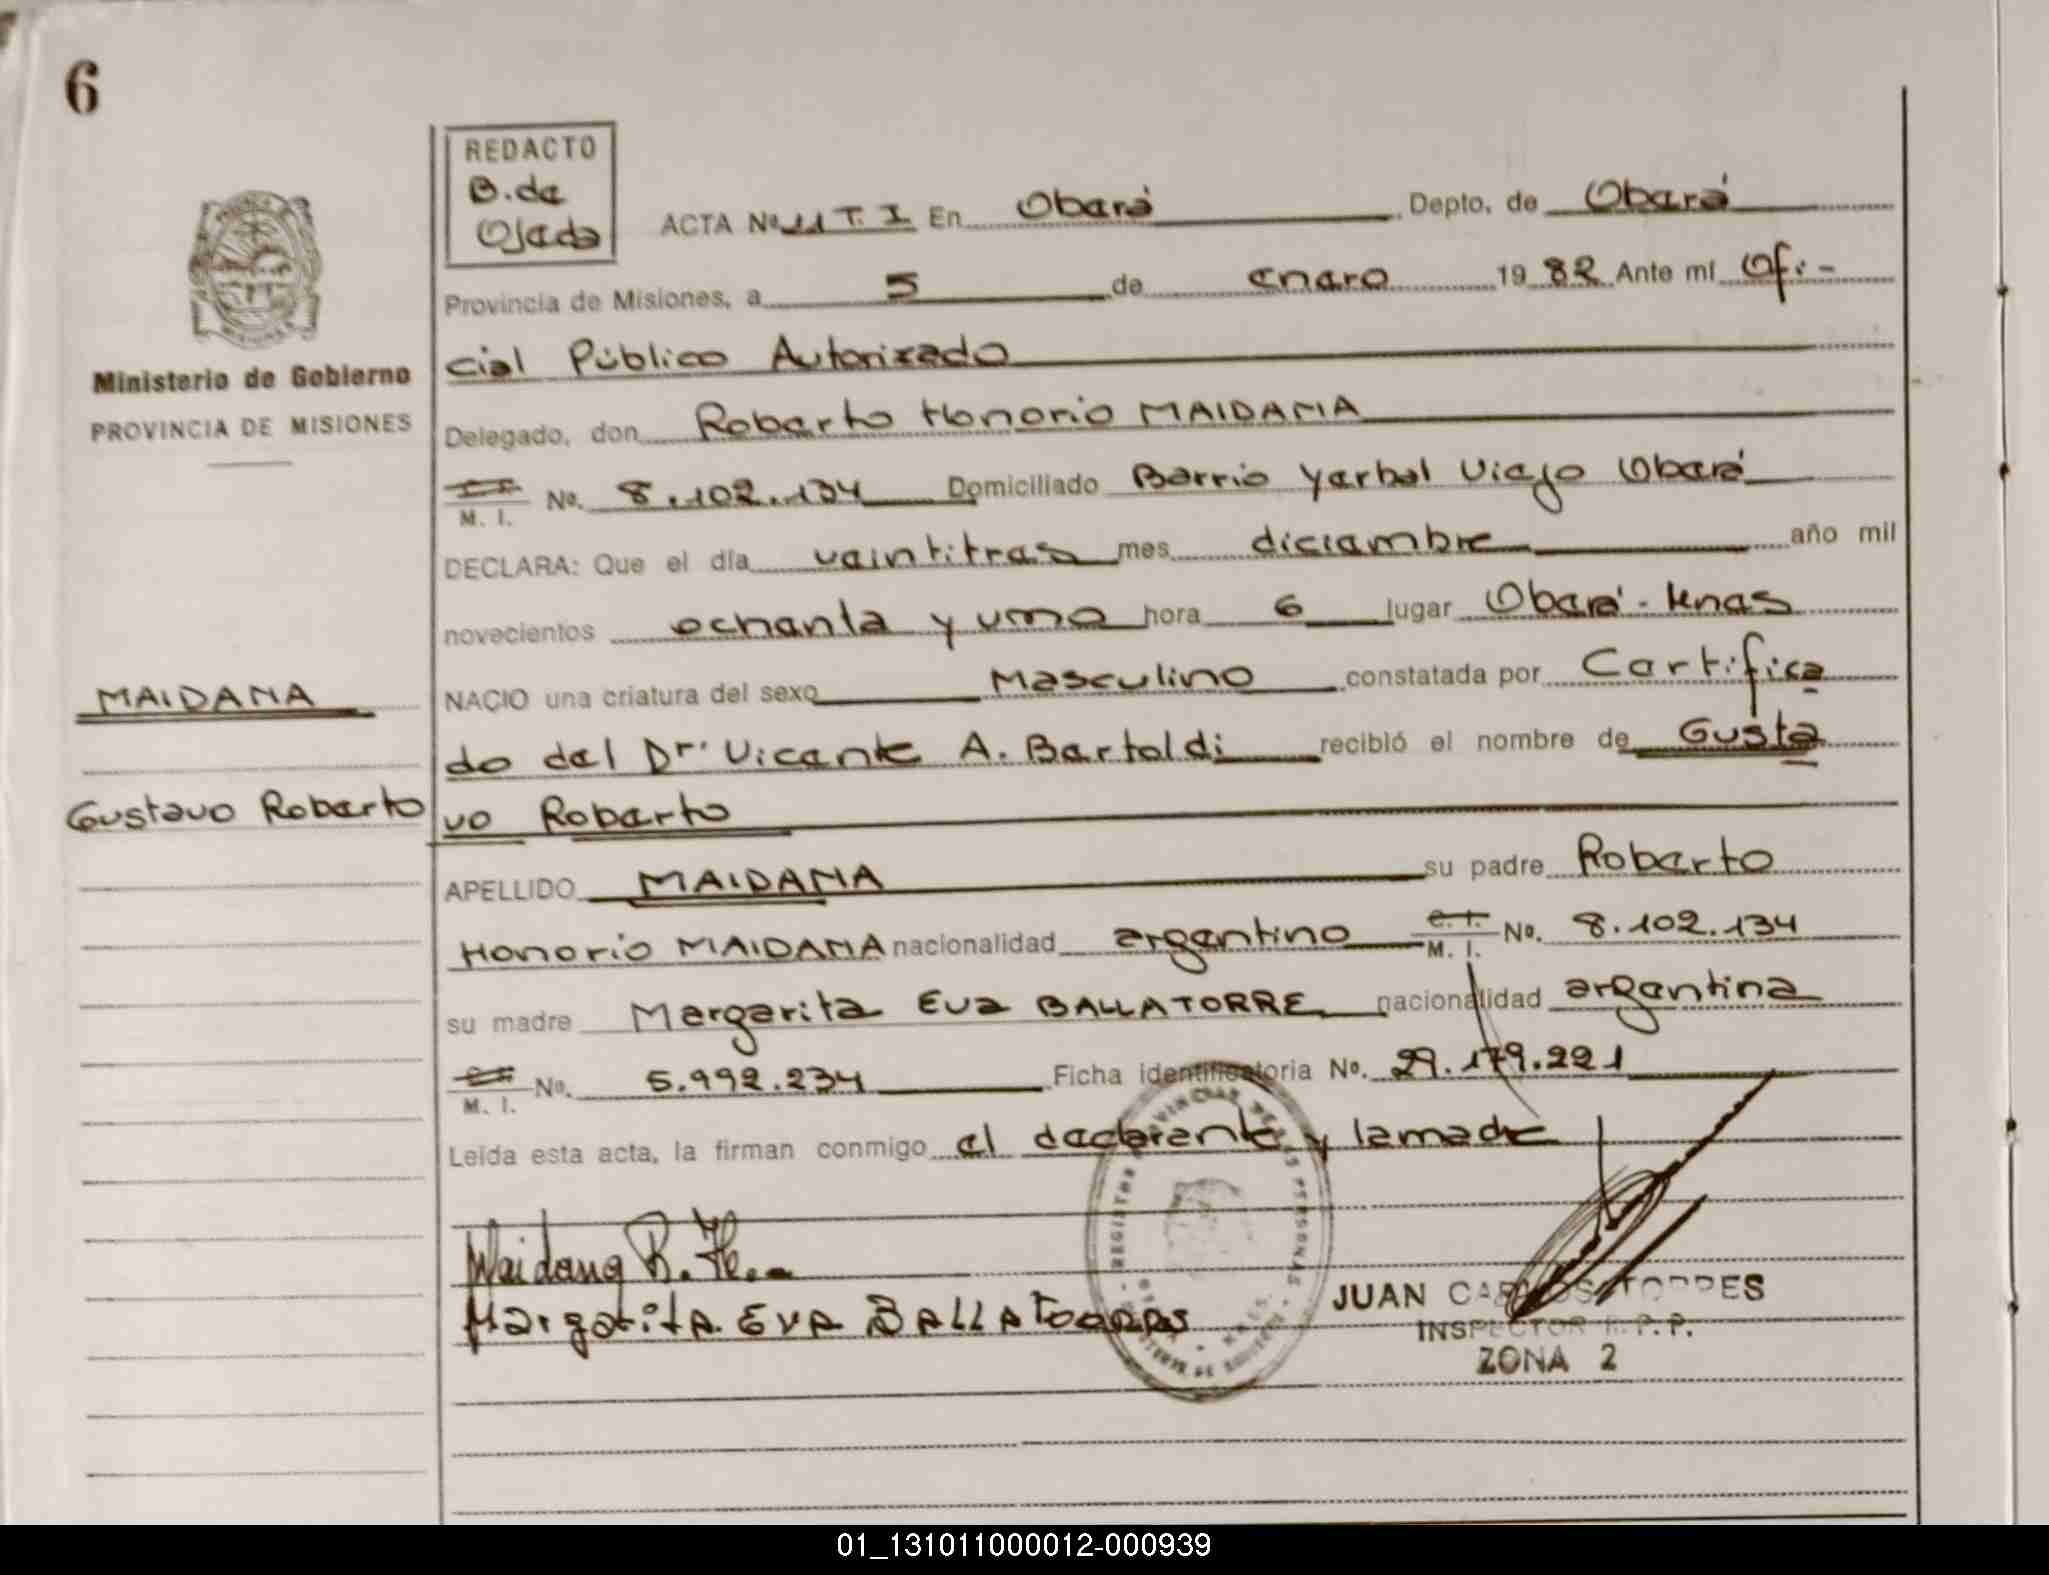 6
REDACTO
B. de
Ojeda
ACTA Nº 11 T. I En Oberá Depto. de Oberá
Provincia de Misiones, a 5 de enero 1982 Ante mí Ofi-
cial Público Autorizado
Ministerio de Gobierno
PROVINCIA DE MISIONES
Delegado, don Roberto Honorio MAIDANA
M. I. No. 8.102.134 Domiciliado Barrio Yerbal Viejo Oberá
DECLARA: Que el día veintitres mes diciembre año mil
novecientos ochenta y uno hora 6 lugar Oberá-Mnes
MAIDANA
NACIO una criatura del sexo Masculino constatada por Certifica
do del Dr. Vicente A. Bertoldi recibió el nombre de Gusta
Gustavo Roberto
vo Roberto
APELLIDO MAIDANA su padre Roberto
Honorio MAIDANA nacionalidad argentino C. I. M. I. No. 8.102.134
su madre Margarita Eva BALLATORRE nacionalidad argentina
M. I. No. 5.992.234 Ficha identificatoria No. 29.179.221
Leída esta acta, la firman conmigo el declarante y la madre
Maidana R. H.
Margarita Eva BALLATORRES
JUAN CARLOS TORRES
INSPECTOR R.P.P.
ZONA 2
01_131011000012-000939